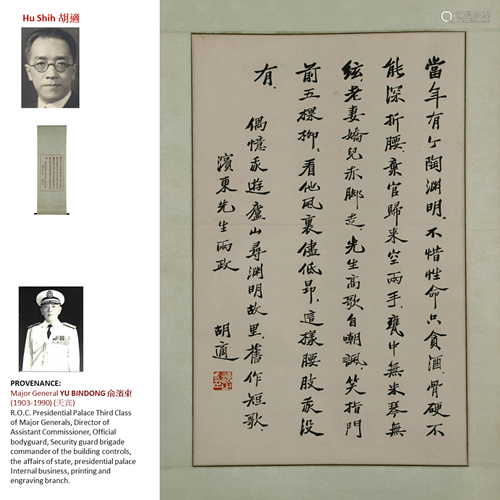 Hu Shih 胡適
當年有个陶渊明，不惜性命只貪酒，骨硬不
能深折腰，棄官歸来空兩手，甕中無米琴無
絃，老妻嬌兒赤脚走，先生高歌自嘲諷，笑指門
前五棵柳，看他風裏儘低昂，這樣腰肢我没
有。
偶憶我遊廬山尋渊明故里，舊作短歌，
濱東先生兩政
胡適
PROVENANCE:
Major General YU BINDONG 俞濱東
(1903-1990) (天宾)
R.O.C. Presidential Palace Third Class
of Major Generals, Director of
Assistant Commissioner, Official
bodyguard, Security guard brigade
commander of the building controls,
the affairs of state, presidential palace
Internal business, printing and
engraving branch.